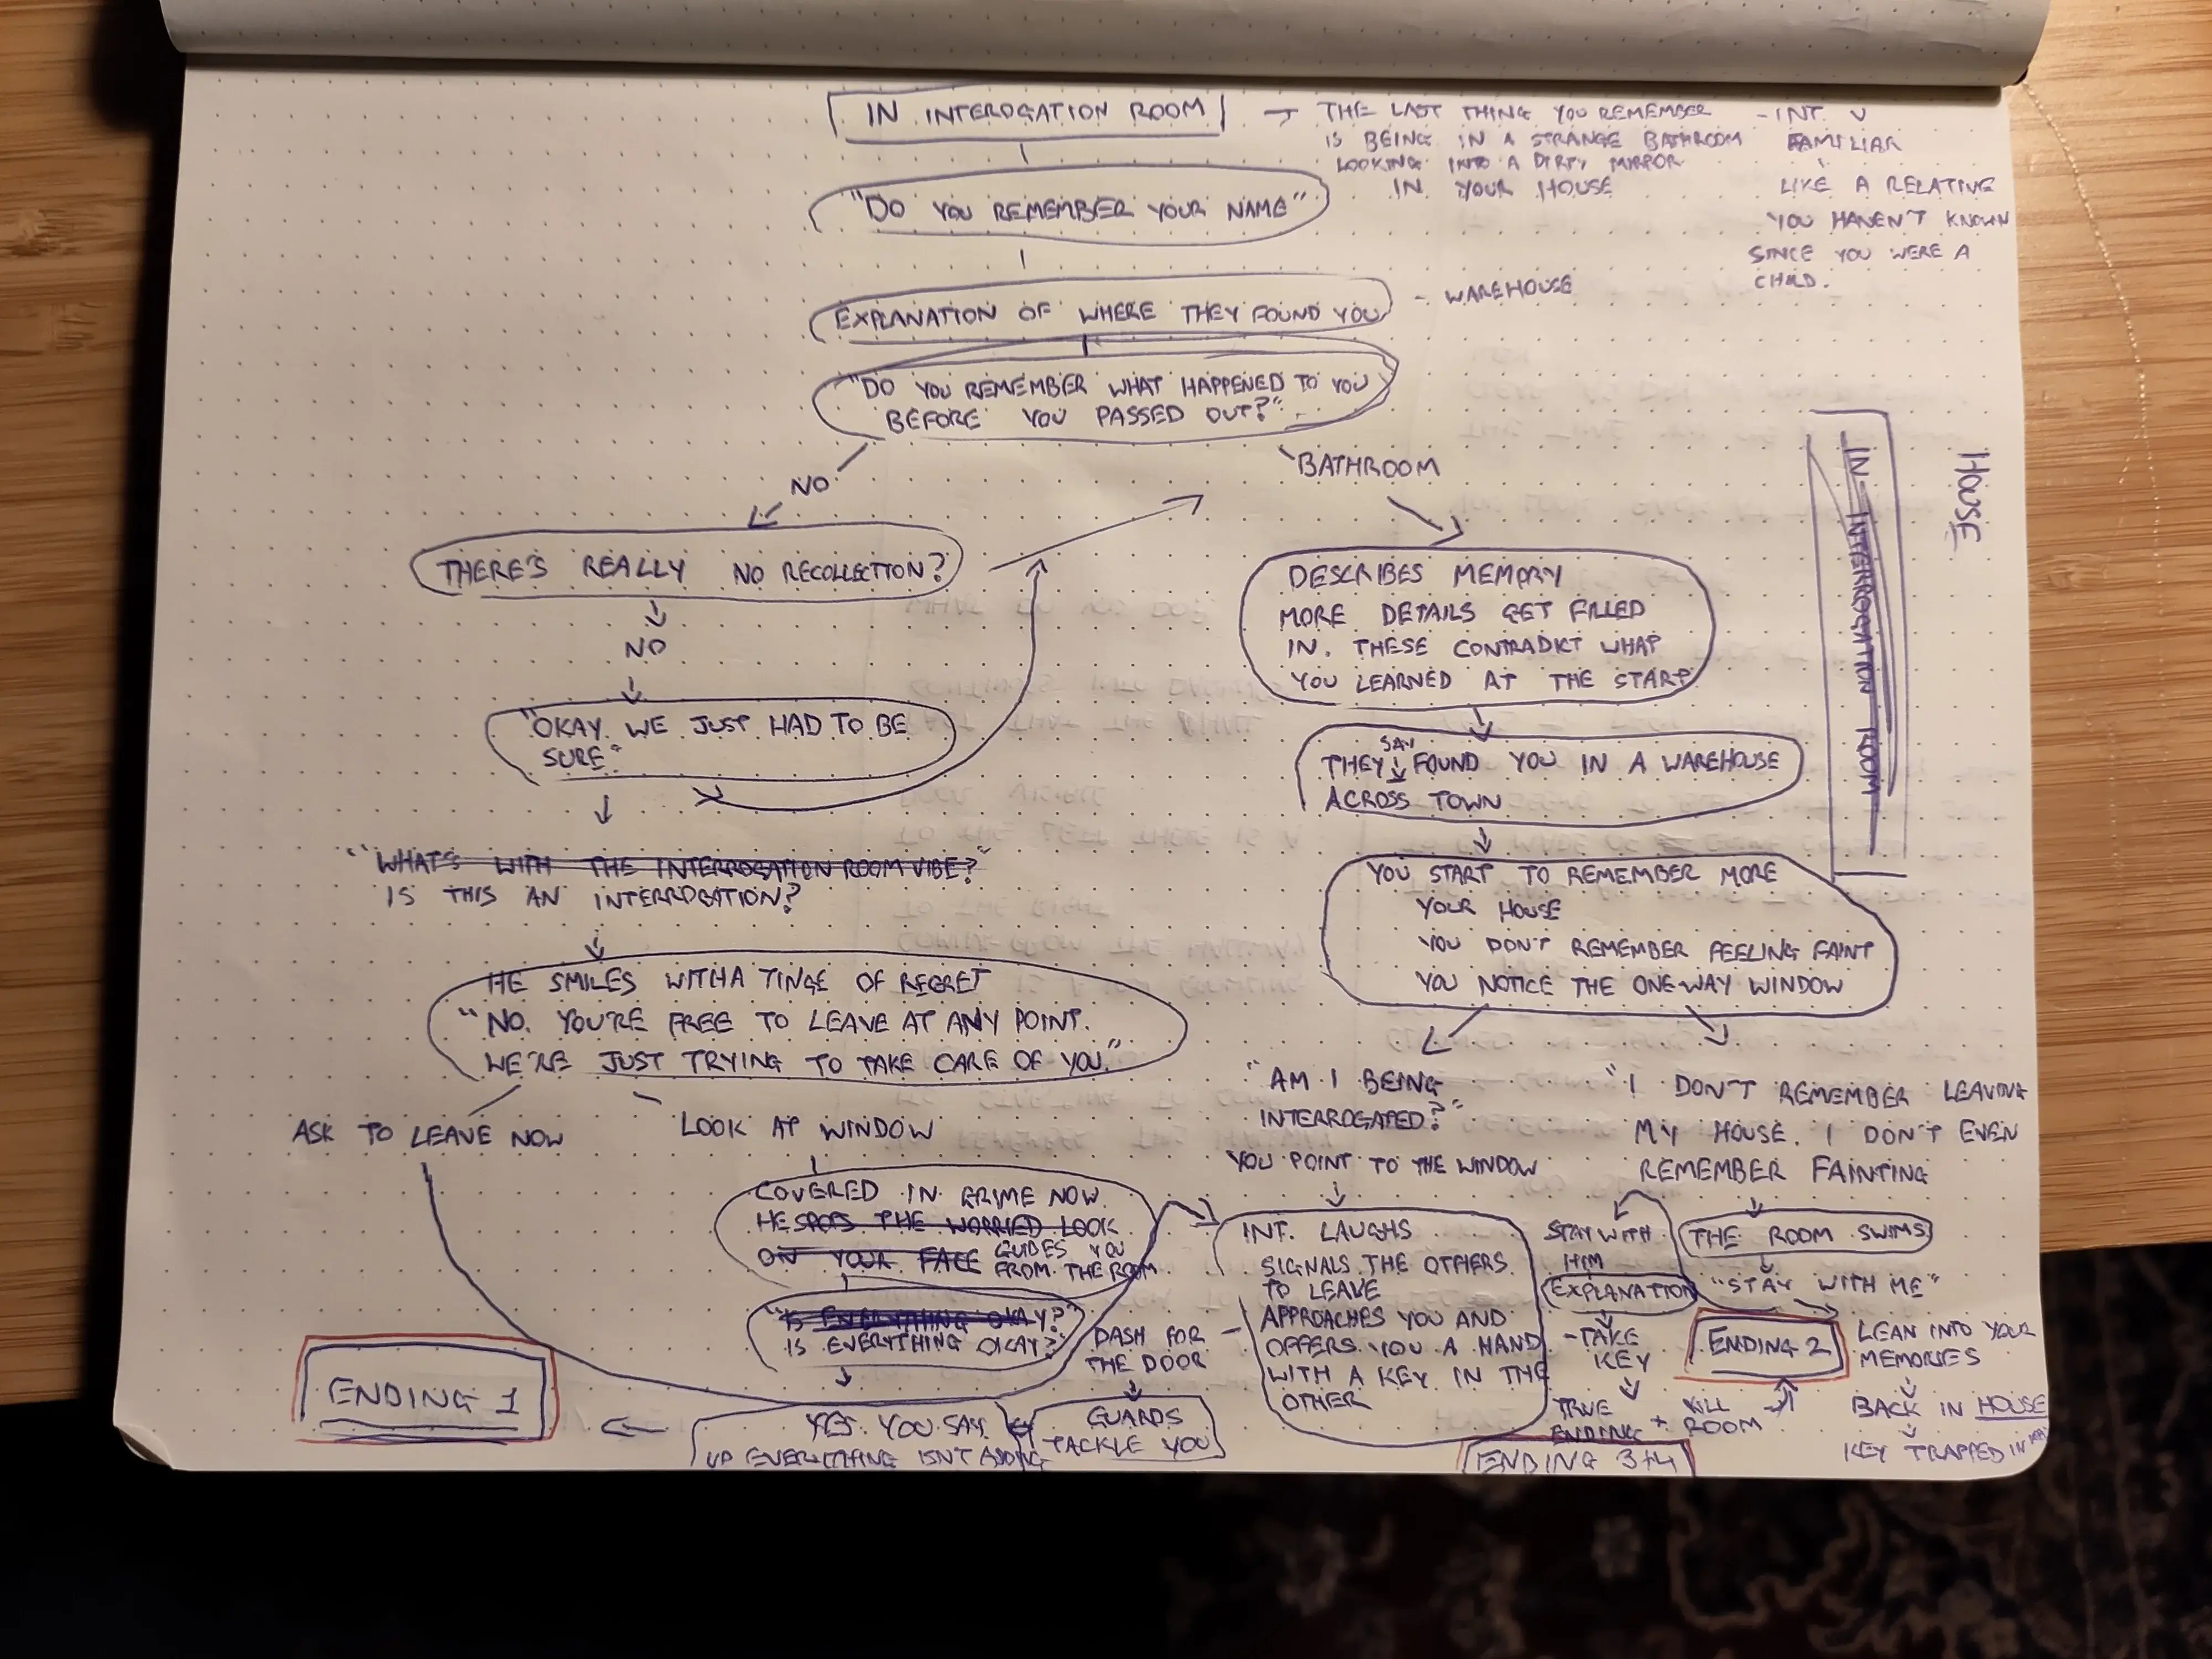 IN INTEROGATION ROOM
→ THE LAST THING YOU REMEMBER
IS BEING IN A STRANGE BATHROOM
LOOKING INTO A DIRTY MIRROR
IN YOUR HOUSE
- INT. V
FAMILIAR
LIKE A RELATIVE
YOU HAVEN'T KNOWN
SINCE YOU WERE A
CHILD.
"DO YOU REMEMBER YOUR NAME"
EXPLANATION OF WHERE THEY FOUND YOU
- WAREHOUSE
"DO YOU REMEMBER WHAT HAPPENED TO YOU
BEFORE YOU PASSED OUT?"
NO
BATHROOM
THERE'S REALLY NO RECOLLECTION?
NO
"OKAY. WE JUST HAD TO BE
SURE"
"WHAT'S WITH THE INTERROGATION ROOM VIBE?"
IS THIS AN INTERROGATION?
HE SMILES WITH A TINGE OF REGRET
"NO. YOU'RE FREE TO LEAVE AT ANY POINT.
WE'RE JUST TRYING TO TAKE CARE OF YOU."
ASK TO LEAVE NOW
LOOK AT WINDOW
COVERED IN GRIME NOW.
HE SPOTS THE WORRIED LOOK
ON YOUR FACE GUIDES YOU
FROM THE ROOM
"IS EVERYTHING OKAY?"
IS EVERYTHING OKAY?"
YES. YOU SAY.
UP EVERYTHING ISN'T ADDING
ENDING 1
DESCRIBES MEMORY
MORE DETAILS GET FILLED
IN. THESE CONTRADICT WHAT
YOU LEARNED AT THE START
THEY SAY FOUND YOU IN A WAREHOUSE
ACROSS TOWN
YOU START TO REMEMBER MORE
YOUR HOUSE
YOU DON'T REMEMBER FEELING FAINT
YOU NOTICE THE ONE-WAY WINDOW
IN INTERROGATION ROOM
HOUSE
"AM I BEING
INTERROGATED?"
YOU POINT TO THE WINDOW
INT. LAUGHS
SIGNALS THE OTHERS
TO LEAVE
APPROACHES YOU AND
OFFERS YOU A HAND
WITH A KEY IN THE
OTHER
DASH FOR
THE DOOR
GUARDS
TACKLE YOU
"I DON'T REMEMBER LEAVING
MY HOUSE. I DON'T EVEN
REMEMBER FAINTING
THE ROOM SWIMS
"STAY WITH ME"
STAY WITH
HIM
EXPLANATION
- TAKE
KEY
TRUE
ENDING + KILL
ROOM
ENDING 3+4
ENDING 2
LEAN INTO YOUR
MEMORIES
BACK IN HOUSE
KEY TRAPPED IN